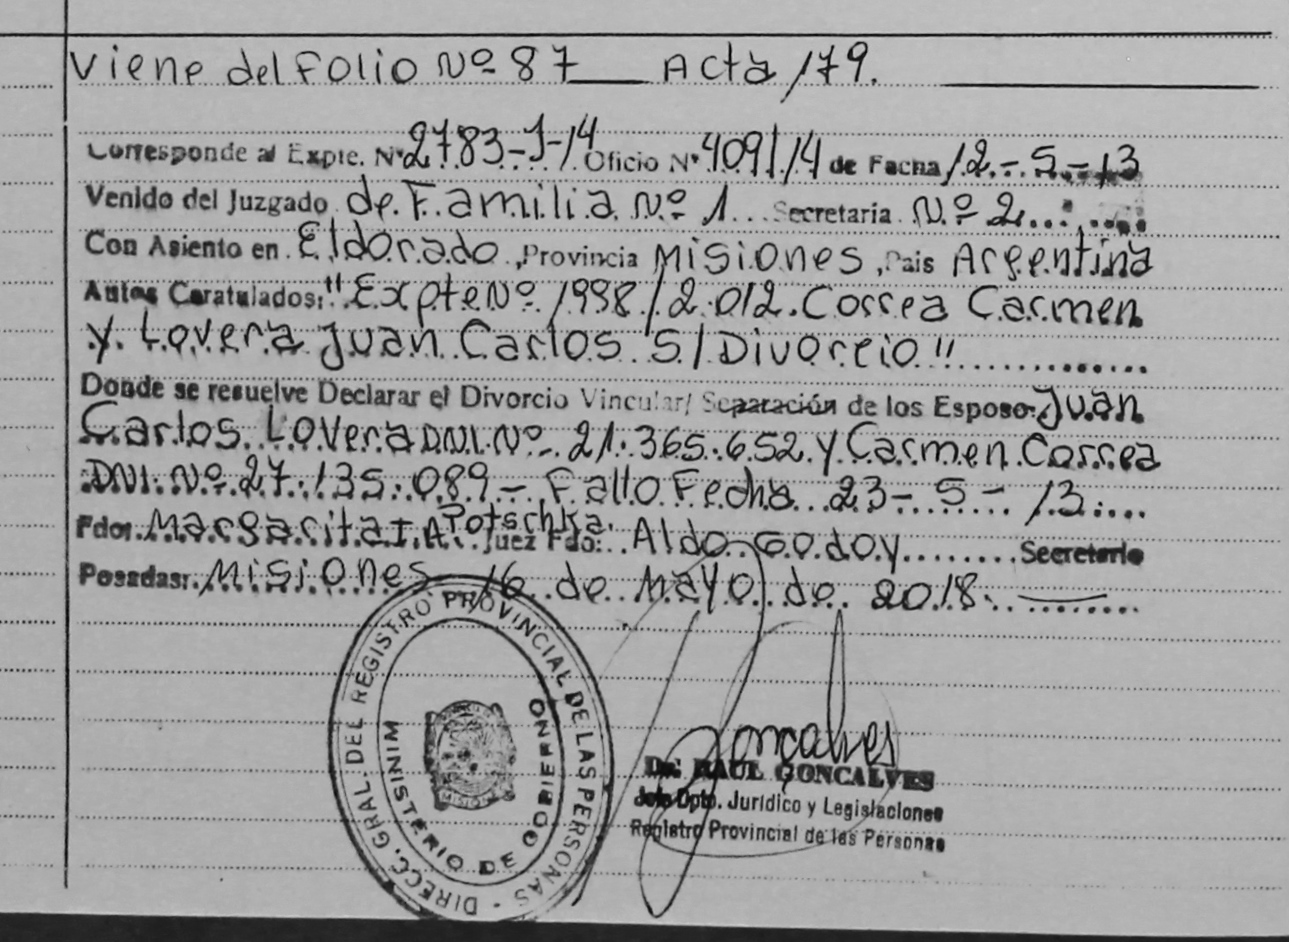 Viene del Folio Nº 87 ___ Acta 179.
Corresponde al Expte. Nº 2783-J-14 Oficio Nº 4091/14 de Fecha 12.-5.-13
Venido del Juzgado de Familia Nº 1 Secretaria Nº 2
Con Asiento en Eldorado, Provincia Misiones, Pais Argentina
Autos Caratulados: "Expte Nº 1998/2.012. Correa Carmen
y Lovera Juan Carlos S/ Divorcio"
Donde se resuelve Declarar el Divorcio Vincular/ Separación de los Esposo: Juan
Carlos Lovera DNI. Nº 21.365.652 y Carmen Correa
DNI. Nº 27.135.089 - Fallo Fecha 23-5-13
Fdo: Margarita I. A. Potschka. Juez Fdo: Aldo Godoy Secretario
Posadas: Misiones 16 de Mayo de 2018.
DIRECC. GRAL. DEL REGISTRO PROVINCIAL DE LAS PERSONAS -
MINISTERIO DE GOBIERNO
Goncalves
Dr. RAUL GONCALVES
Jefe Dpto. Jurídico y Legislaciones
Registro Provincial de las Personas